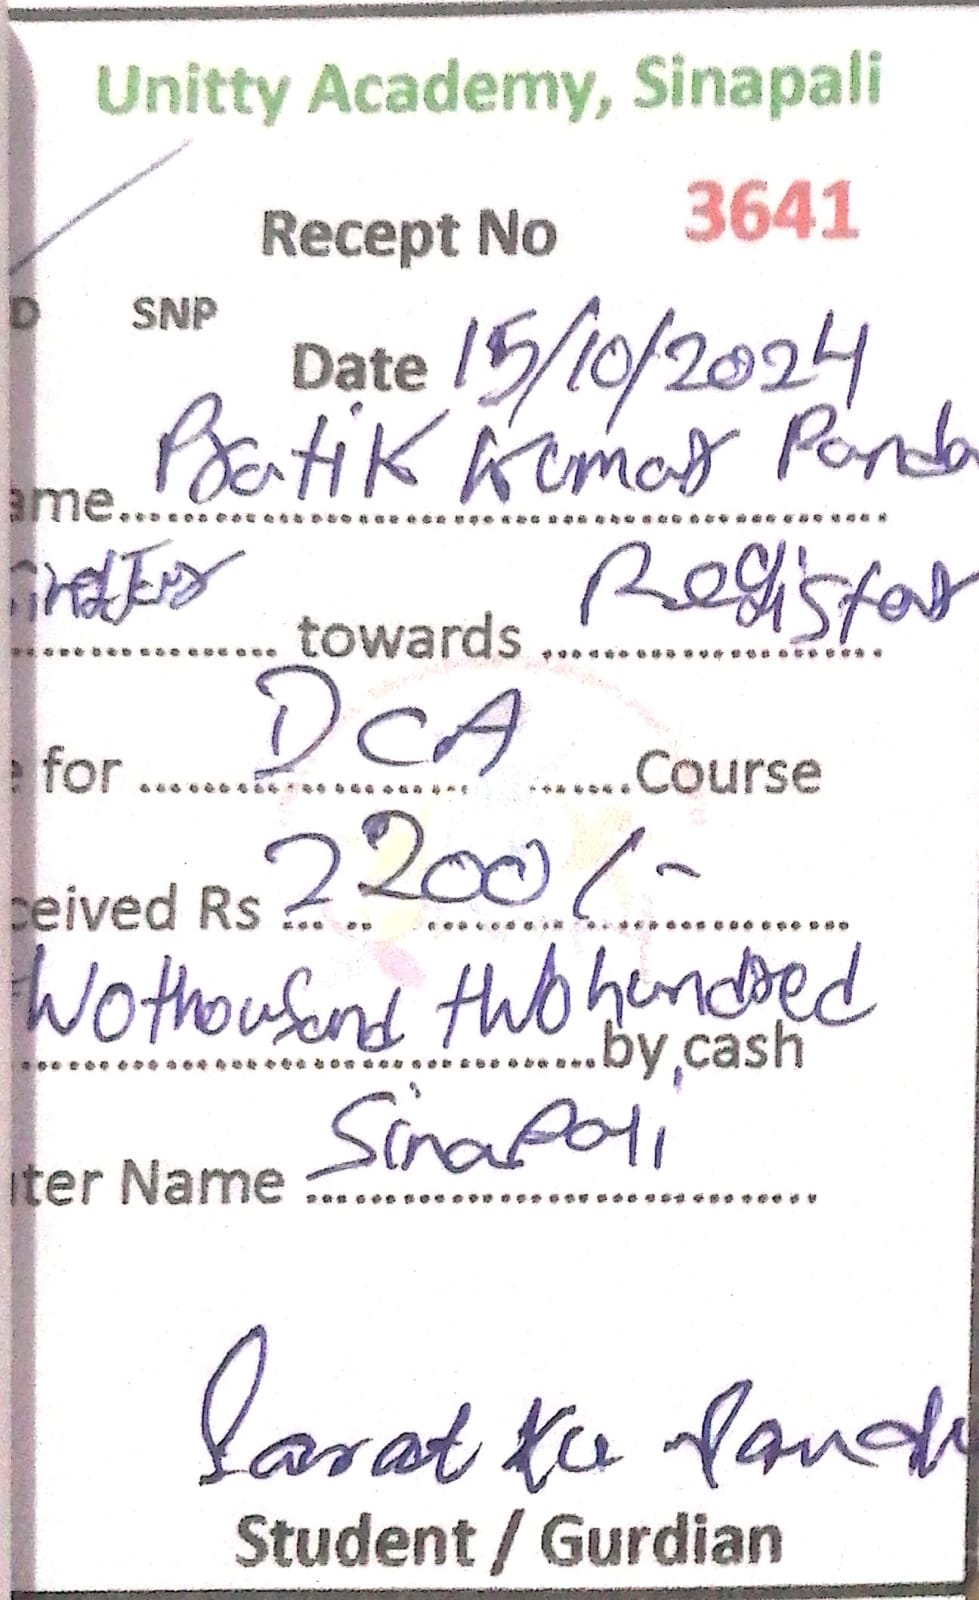 Unitty Academy, Sinapali
Recept No 3641
D SNP
Date 15/10/2024
ame.... Pratik Kumar Panda
.... towards .... Registar
e for .... DCA .... Course
ceived Rs 2200/-
Wothousand twohundred by cash
ter Name Sinapali
Sarat Ku Pand
Student / Gurdian